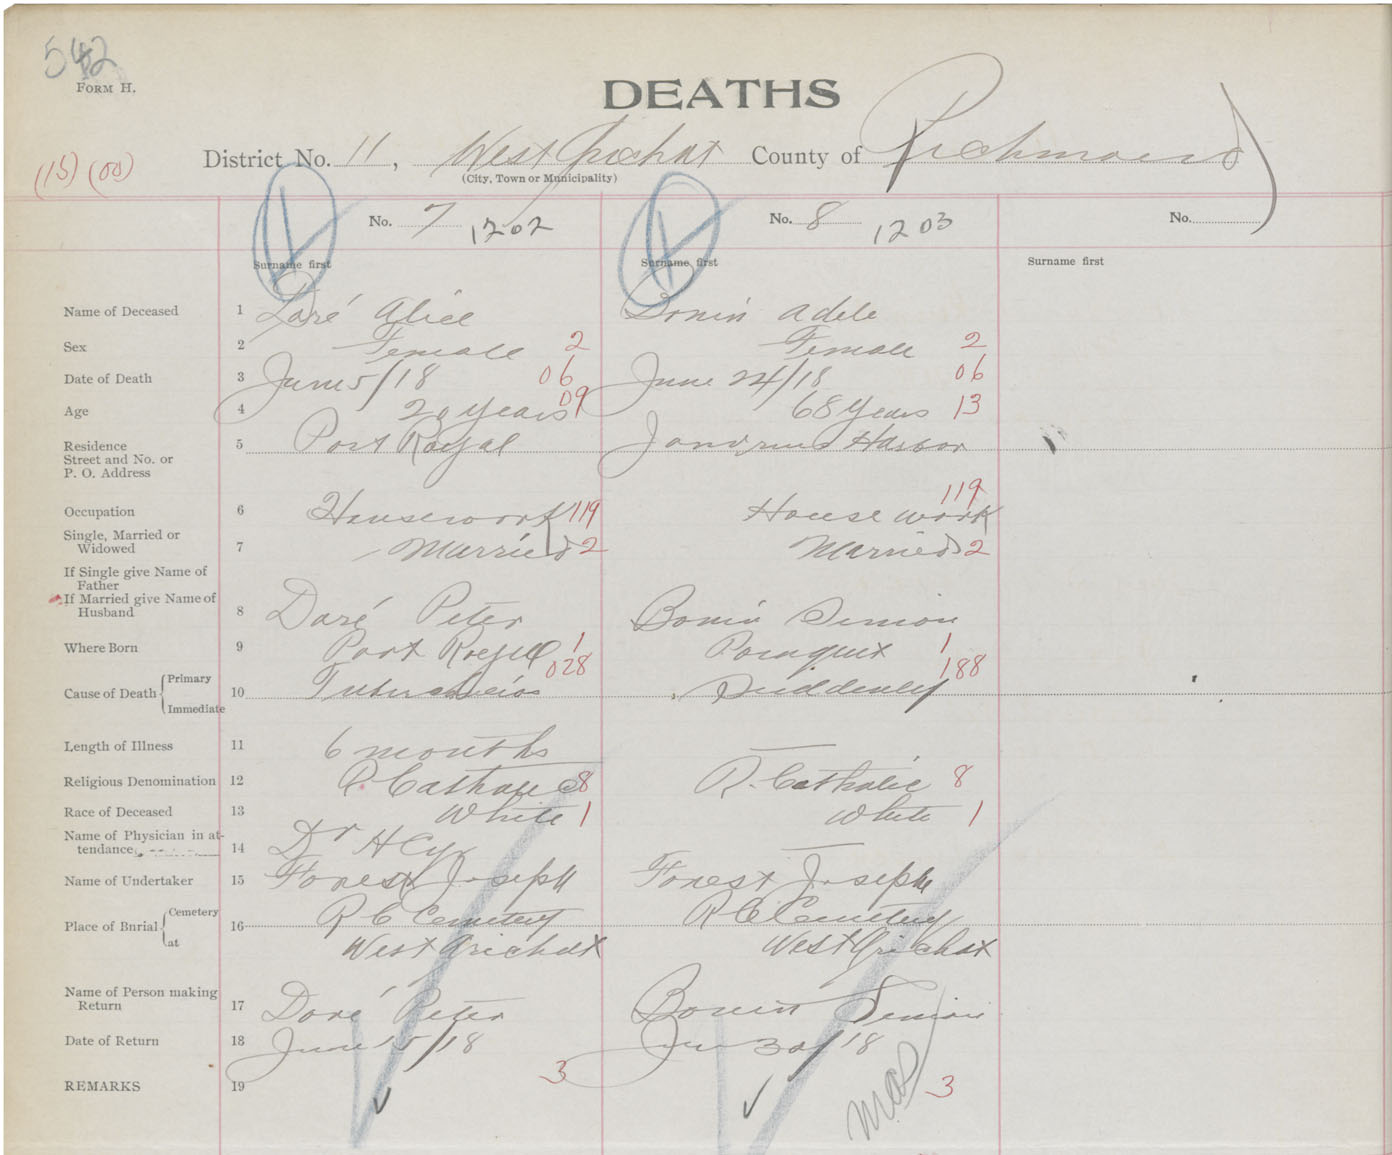 542
FORM H.
DEATHS
(15) (00)
District No. 11, West Arichat County of Richmond
(City, Town or Municipality)
No. 7 1202 No. 8 1203 No.
Surname first Surname first Surname first
Name of Deceased 1 Doré Alice Bonin Adele
Sex 2 Female 2 Female 2
Date of Death 3 June 5/18 06 June 24/18 06
Age 4 20 years 09 68 years 13
Residence 5 Port Royal Janvrins Harbor
Street and No. or
P. O. Address
Occupation 6 Housework 119 House work 119
Single, Married or
Widowed 7 Married 2 Married 2
If Single give Name of
Father
If Married give Name of
Husband 8 Doré Peter Bonin Simon
Where Born 9 Port Royal 1 Pomquet 1
Cause of Death { Primary
Immediate 10 Tuberculosis 028 Suddenly 188
Length of Illness 11 6 months —
Religious Denomination 12 R. Catholic 8 R. Catholic 8
Race of Deceased 13 White 1 White 1
Name of Physician in at-
tendance 14 Dr H Cyr —
Name of Undertaker 15 Forest Joseph Forest Joseph
Place of Bnrial { Cemetery
at 16 R C Cemetery R C Cemetery
West Arichat West Arichat
Name of Person making
Return 17 Doré Peter Bonin Simon
Date of Return 18 June 15/18 Jun 30/18
REMARKS 19 3 3